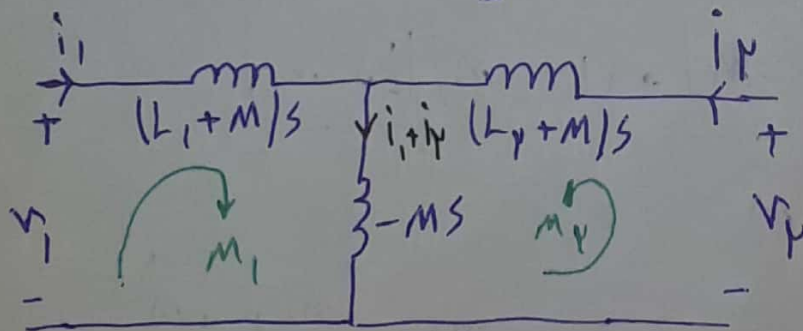 i₁ i₂
+ (L₁+M)S i₁+i₂ (L₂+M)S +
v₁ M₁ -MS M₂ v₂
- -